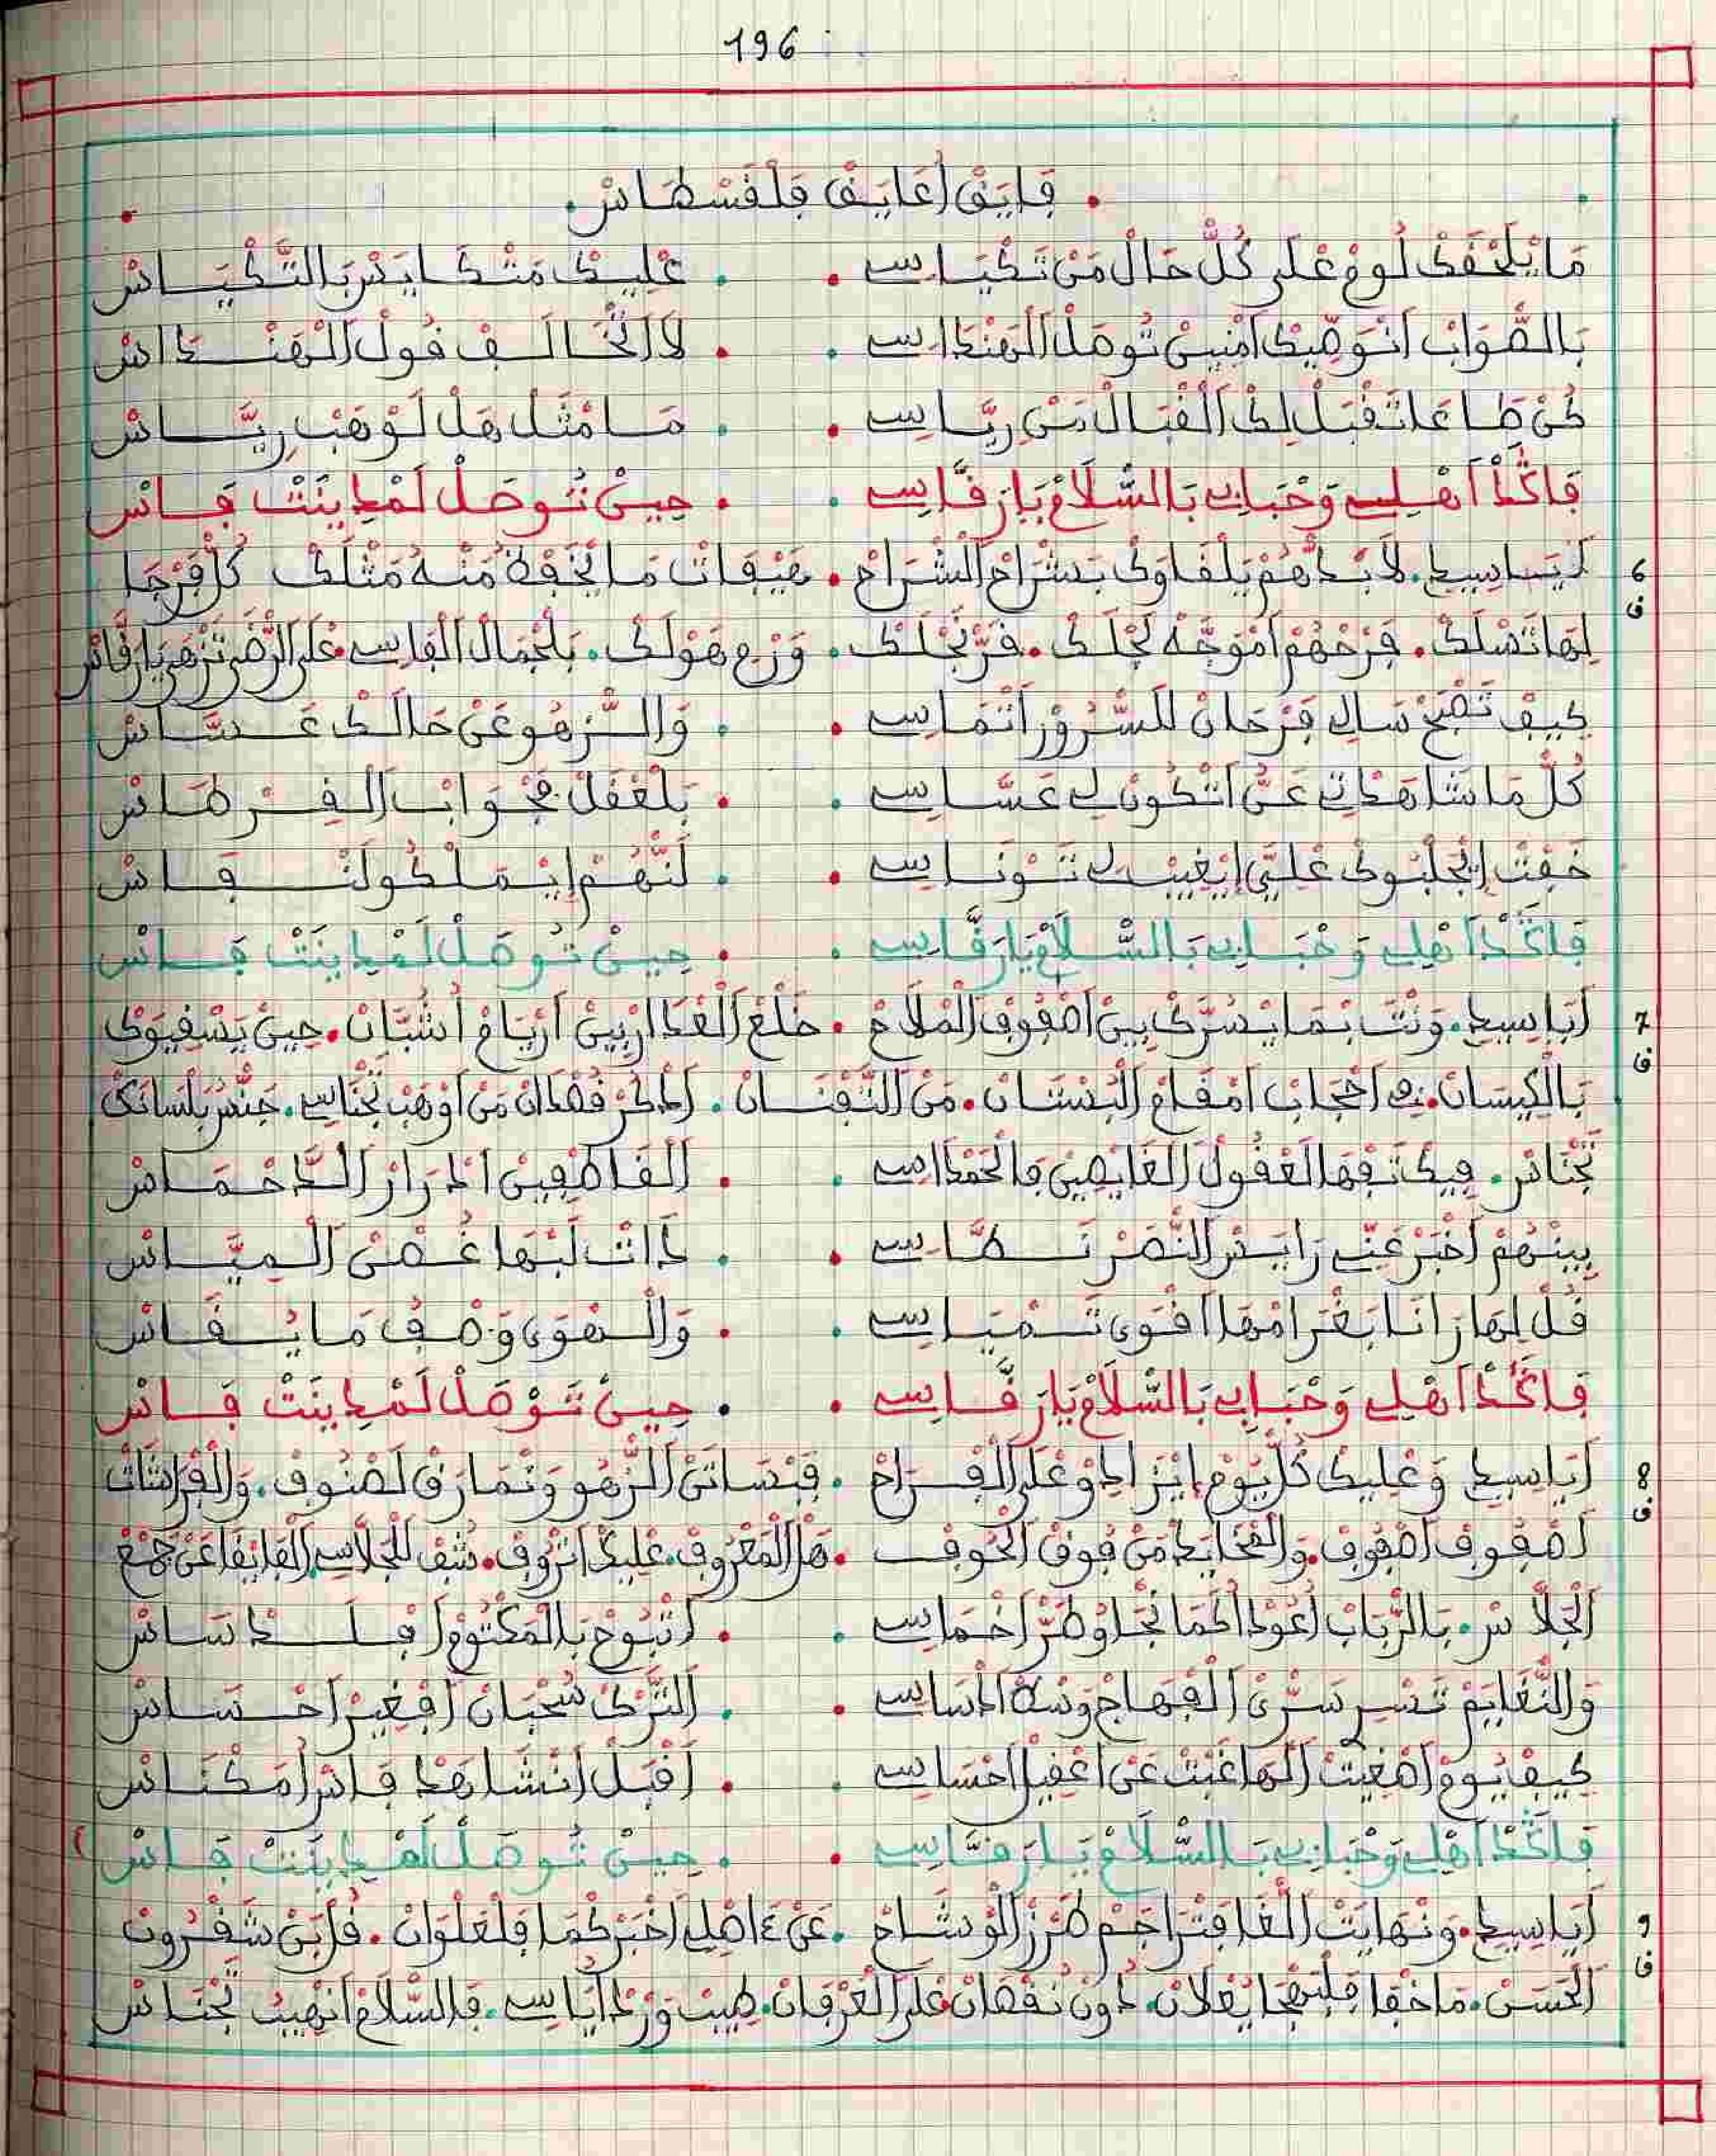 196
فَايَقْ أَعَايَقْ فَلْقَسْطَاسْ
مَا يَلْحْقَكْ لُومْ عْلَى كُلّْ حَالْ مَنْ تَكْيَاسِي . عْلِيكْ مَتْكَايَسْ بَالتَّكْيَاسْ
بَالصّْوَابْ انْوَصِّيكْ امْنِينْ تُوصَلْ الْهَنْدَاسِي . لَا اتْخَالَفْ قُولْ الْهَنْدَاسْ
كُنْ طَاعَا تَقْبَلْ لِكْ الْقْبَالْ مَنْ رِيَّاسِي . مَا مْثَلْ هَلْ لَوْهَبْ رِيَّاسْ
فَاكَّدْ اَهْلِي وَحْبَابِي بَالسّْلَامْ يَا رَقَّاسِي . حِينْ تُوصَلْ لَمْدِينَتْ فَاسْ
6
ف
أَيَاسِيدِي . لَابَدّْهُمْ يَلْقَاوَكْ بَشْرَاحْ الشْرَاحْ . هَيْفَاتْ مَا يَخْفَاهْ مَنْهُ مَثْلَكْ كُلّْ فَرْجَا
لِهَا تَسْلَكْ . فَرْحْهُمْ اَمْوَجَّهْ لَجْلَكْ . فَرّْجْلَكْ . وَرْحْ هَوْلَكْ . بَلْجْمَالْ الْفَاسِي عْلَى الرّْضَى تَزْهَى يَا رَقَّاسْ
كِيفْ تَصْبَحْ سَالِي فَرْحَانْ لَلسّْرُورْ اتْمَاسِي . وَالزّْهُو عَنْ حَالَكْ عَسَّاسْ
كُلّْ مَا شَاهَدْتِي عَنِّي اتْكُونْ لِي عَسَّاسِي . بَلْعْقَلْ فَجْوَابْ الْقِرْطَاسْ
خَفْتْ إِيْجَلْبُوكْ عْلِيَّ إِيْغِيبْ لِي تَوْنَاسِي . لَنّْهُمْ إِيْمَلْكُو لَنْفَاسْ
فَاكَّدْ اَهْلِي وَحْبَابِي بَالسّْلَامْ يَا رَقَّاسِي . حِينْ تُوصَلْ لَمْدِينَتْ فَاسْ
7
ف
أَيَاسِيدِي . وَنْتَ بْمَا يْسَرَّكْ بِينْ اصْفُوفْ الْمْلَاحْ . خَلْعْ الْعْدَارْ بِينْ أَرْيَامْ أُشُبَّانْ . حِينْ يَسْقِيوَكْ
بَالْكِيسَانْ . فِي احْجَابْ امْقَامْ الْبُسْتَانْ . مَنْ التَّفْتَانْ . اَدْكُرْ فَقْدَانْ مَنْ أَوْهَبْ تَجْنَاسِي . جَنّْسْ بَلْسَانَكْ
تَجْنَاسْ . فِيكْ تَفْهَا لَعْقُولْ الْغَايْصِينْ فَالْحَمْدَاسِي . الْقَاطْفِينْ ادْرَارْ الدَّاحْمَاسْ
بِينْهُمْ اخْبَرْ عَنِّي رَايَسْ النّْصَرْ نَطَّاسِي . دَاتْ لَبْهَا غُصْنْ الْمِيَّاسْ
قُلْ لِهَا رَانَا بَغْرَامْهَا اقْوَى تَسْمْيَاسِي . وَالْهَوَى وَصْفُ مَا يُقَاسْ
فَاكَّدْ اَهْلِي وَحْبَابِي بَالسّْلَامْ يَا رَقَّاسِي . حِينْ تَوْصَلْ لَمْدِينَتْ فَاسْ
8
ف
أَيَاسِيدِي وَعْلِيكْ كُلّْ يُومْ إِيْزَادُو عْلَى الْفْرَاحْ . فَبْسَاتَنْ الزّْهُو وَنْمَارَقْ لَصْنُوفْ . وَالْفْرَاشَاتْ
اصْفُوفْ اصْفُوفْ . وَالْقْحَايَدْ مَنْ فُوقْ الْحُوفْ . هَلْ الْمَعْرُوفْ عْلِيكْ اتْرُوفْ . شُفْ لَلْجْلَاسِي الْفَايْقَا عَنْ جَمْعْ
الْجْلَّاسْ . بَالرّْبَابْ أُعُودْ اكْمَانْجَا وْطَرّْ اخْمَاسِي . اتْبُوحْ بَالْمَكْتُومْ افْلَدْسَاسْ
وَالنّْغَايَمْ تَسْرِي سَرّْ الْفْهَاجْ وَسْطْ ادْسَاسِي . التَّرْكْ سُحْبَانْ ابْغِيرْ احْسَاسْ
كِيفْ يُومْ اصْغِيتْ الْهَا غَبْتْ عَنْ اعْقِيلْ احْسَاسِي . اقْبَلْ انْشَاهَدْ فَاسْ أُمَكْنَاسْ
فَاكَّدْ اَهْلِي وَحْبَابِي بَالسّْلَامْ يَا رَقَّاسِي . حِينْ تُوصَلْ لَمْدِينَتْ فَاسْ
9
ف
أَيَاسِيدِي . وَنْهَايَتْ اللّْغَا فَتْرَاجَمْ طَرْزْ الْوْشَاحْ . عَنْ ءَاصْلِي اخْبَرْكْمَا فَلْعَلْوَانْ . قُلْ بَنْ شَقْرُونْ
الْحَسَنْ . مَا خْفَا فَلْبْهْجَا يَعْلَانْ . دُونْ نُقْصَانْ عْلَى الْعَرْفَانْ . طِيبْ وَرْدْ ايَّاسِي . فَالسّْلَامْ انْهِيبُ تَجْنَاسْ